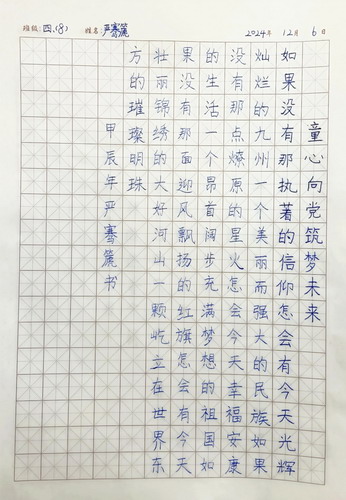 班级：四.(8) 姓名：严骞篪 2024年 12月 6日
童心向党筑梦未来
如果没有那执著的信仰怎会有今天光辉
灿烂的九州一个美丽而强大的民族如果
没有那点燎原的星火怎会今天幸福安康
的生活一个昂首阔步充满梦想的祖国如
果没有那面迎风飘扬的红旗怎会有今天
壮丽锦绣的大好河山一颗屹立在世界东
方的璀璨明珠
甲辰年严骞篪书